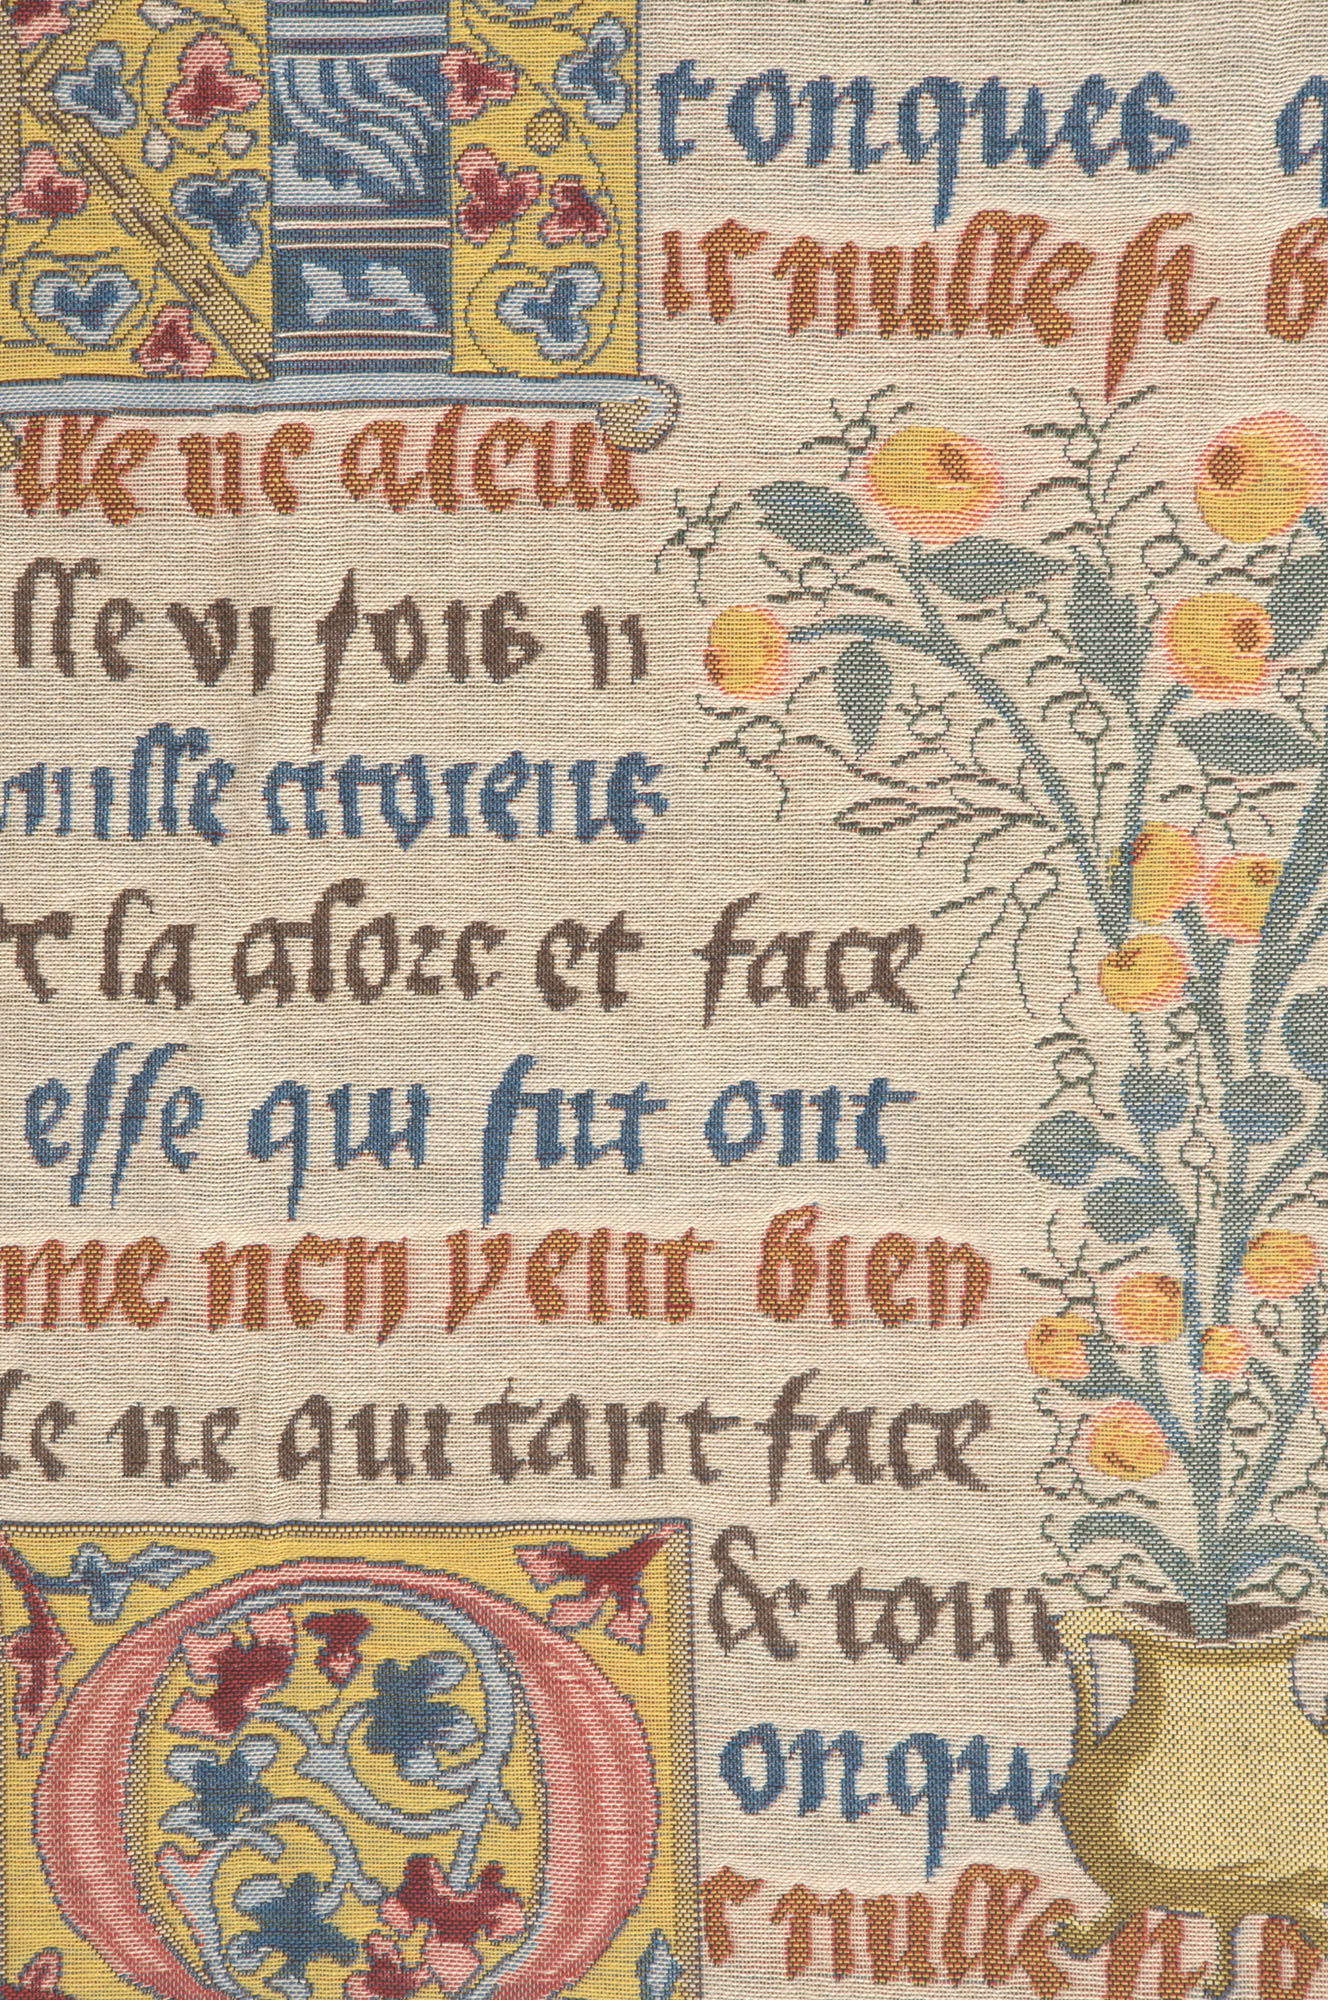 tonques
ur nulle si
lle ne aleur
lle vi fois n
nulle citoiens
la alore et face
esse qui fut ont
me ney veut bien
le ne qui tant face
& tour
onqu
r nulle si b